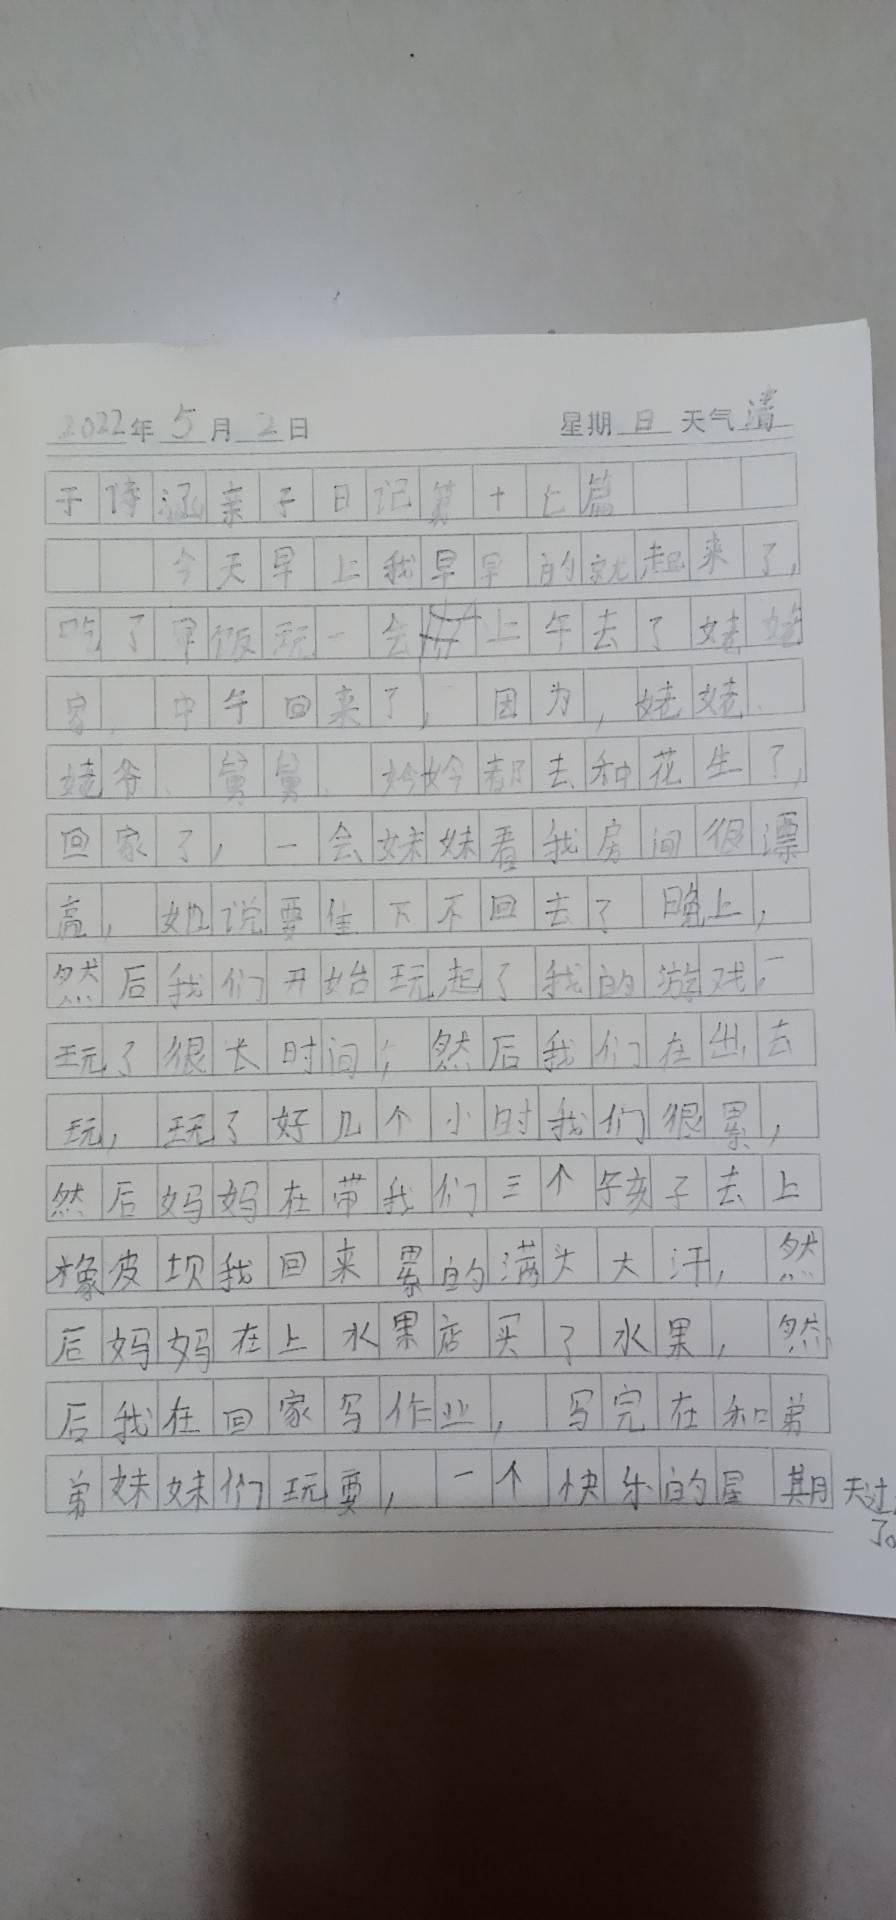 2022年5月2日 星期日 天气清
于诗涵亲子日记第十七篇
今天早上我早早的就起来了,
吃了早饭玩一会上午去了姥姥
家,中午回来了,因为,姥姥、
姥爷、舅舅、妗妗都去种花生了,
回家了,一会妹妹看我房间很漂
亮,她说要住下不回去了晚上,
然后我们开始玩起了我的游戏,一
玩了很长时间;然后我们在出去
玩,玩了好几个小时我们很累,
然后妈妈在带我们三个孩子去上
橡皮坝我回来累的满头大汗,然
后妈妈在上水果店买了水果,然
后我在回家写作业,写完在和弟
弟妹妹们玩耍,一个快乐的星期天过
了。